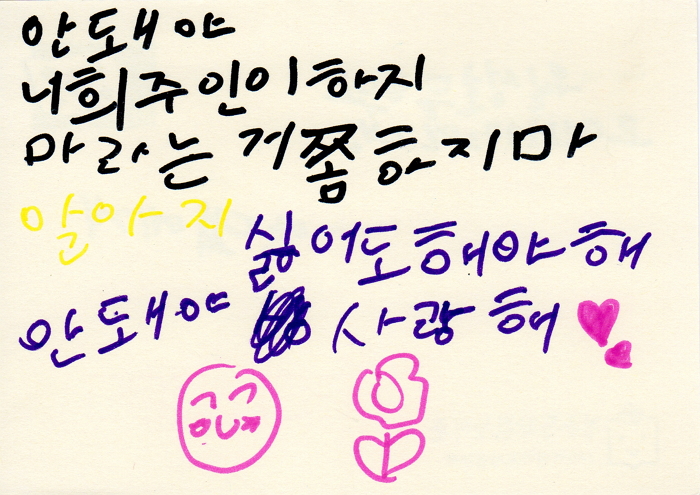 안돼야
너희주인이하지
마라는 거쫌 하지마
말아지 싫어도해야해
안돼야 사랑해